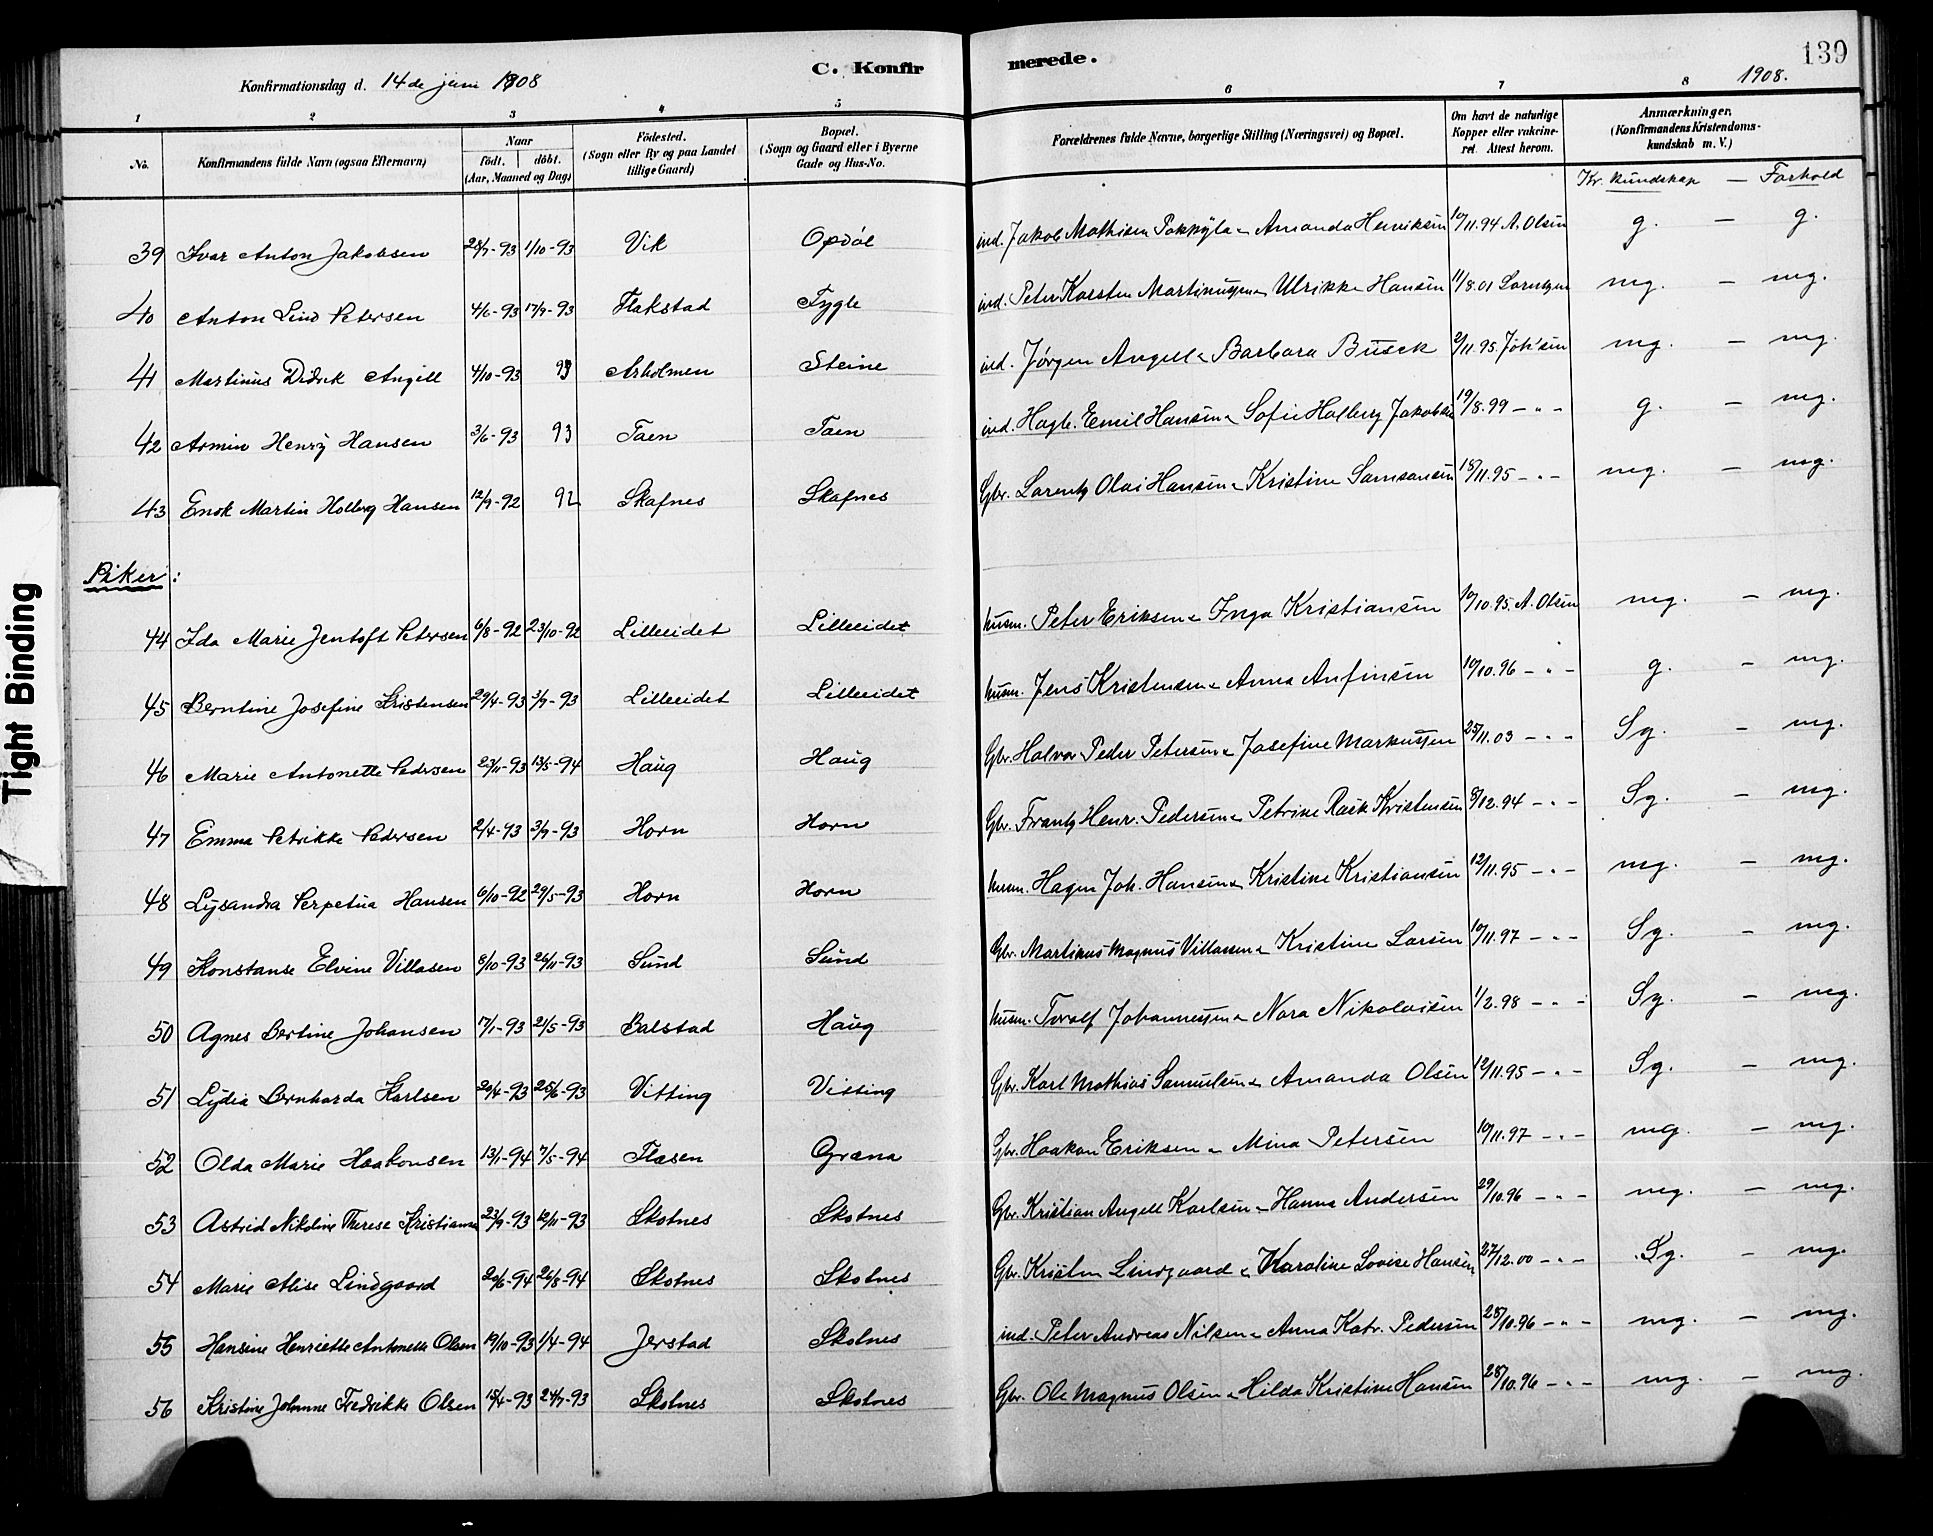 139
Konfirmationsdag d. 14de juni 1908
C. Konfirmerede.
1908.
1 2 3 4 5 6 7 8
No. Konfirmandens fulde Navn (ogsaa Efternavn) Naar født. døbt. (Aar, Maaned og Dag) Fødested. (Sogn eller By og paa Landet tillige Gaard) Bopæl. (Sogn og Gaard eller i Byerne Gade og Hus-No. Forældrenes fulde Navne, borgerlige Stilling (Næringsvei) og Bopæl. Om havt de naturlige Kopper eller vakcineret. Attest herom. Anmærkninger, (Konfirmandens Kristendomskundskab m. V.)
Kr. kundskap — Forhold
39 Ivar Anton Jakobsen 28/7-93 1/10-93 Vik Opdøl ind. Jakob Mathisen & Amanda Henriksen 10/11.94 A. Olsen g. — g.
40 Anton Lind Petersen 4/6-93 17/9-93 Flakstad Tygle ind. Peter Karsten Martinussen & Ulrikke Hansen 11/8.01 Lorntzen mg. — mg.
41 Martinus Didrik Angell 4/10-93 93 Arholmen Steine ind. Jørgen Angell & Barbara Busck 2/11.95. Joh'sen mg. — mg.
42 Armin Henry Hansen 3/6-93 93 Taen Taen ind. Hagb. Emil Hansen & Sofie Holberg Jakobsen 19/8.99 - " - g. — mg.
43 Enok Martin Holberg Hansen 12/9-92 92 Skafnes Skafnes Gbr. Lorentz Olai Hansen & Kristine Samsonsen 18/11.95 - " - mg. — mg.
Piker:
44 Ida Marie Jentoft Petersen 6/8-92 23/10-92 Lilleeidet Lilleeidet husm. Peter Eriksen & Inga Kristiansen 10/10.95. A. Olsen mg. — mg.
45 Berntine Josefine Kristensen 29/4-93 3/9-93 Lilleeidet Lilleeidet husm. Jens Kristensen & Anna Anfinsen 10/10.96 - " - g. — mg.
46 Marie Antonette Pedersen 23/11-93 13/5-94 Haug Haug Gbr. Halvor Peder Petersen & Josefine Markussen 25/11.03 - " - Sg. — mg.
47 Emma Petrikke Pedersen 2/4-93 3/9-93 Horn Horn Gbr. Frantz Henr. Pedersen & Petrine Rask Kristensen 8/12.94 - " - Sg. — mg.
48 Lysandra Perpetua Hansen 6/10-92 29/5-93 Horn Horn husm. Hagen Joh. Hansen & Kristine Kristiansen 12/11.95 - " - mg. — mg.
49 Konstanse Elvine Villasen 8/10-93 26/11-93 Sund Sund Gbr. Martinus Magnus Villassen & Kristine Larsen 10/11.97 - " - Sg. — mg.
50 Agnes Bertine Johansen 17/1-93 21/5-93 Balstad Haug husm. Torolf Johannessen & Nora Nikolaisen 1/2.98 - " - Sg. — mg.
51 Lydia Bernharda Karlsen 20/4-93 25/6-93 Vitting Vitting Gbr. Karl Mathias Samuelsen & Amanda Olsen 12/11.95 - " - Sg. — mg.
52 Olda Marie Haakonsen 13/1-94 7/5-94 Flæsen Græna Gbr. Haakon Eriksen & Mina Petersen 10/11.97 - " - mg. — mg.
53 Astrid Nikoline Therese Kristiansen 23/9-93 12/11-93 Skotnes Skotnes Gbr. Kristian Angell Karlsen & Hanna Andersen 29/10.96 - " - mg. — mg.
54 Marie Alise Lindgaard 20/6-94 26/8-94 Skotnes Skotnes Gbr. Kristen Lindgaard & Karoline Lovise Hansen 27/12.00 - " - Sg. — mg.
55 Hansine Henriette Antonette Olsen 19/10-93 1/4-94 Jerstad Skotnes ind. Peter Andreas Nilsen & Anna Katr. Pedersen 28/10.96 - " - mg. — mg.
56 Kristine Johanne Fredrikke Olsen 15/4-93 24/7-93 Skotnes Skotnes Gbr. Ole Magnus Olsen & Hilda Kristine Hansen 28/10.96 - " - mg. — mg.
Tight Binding